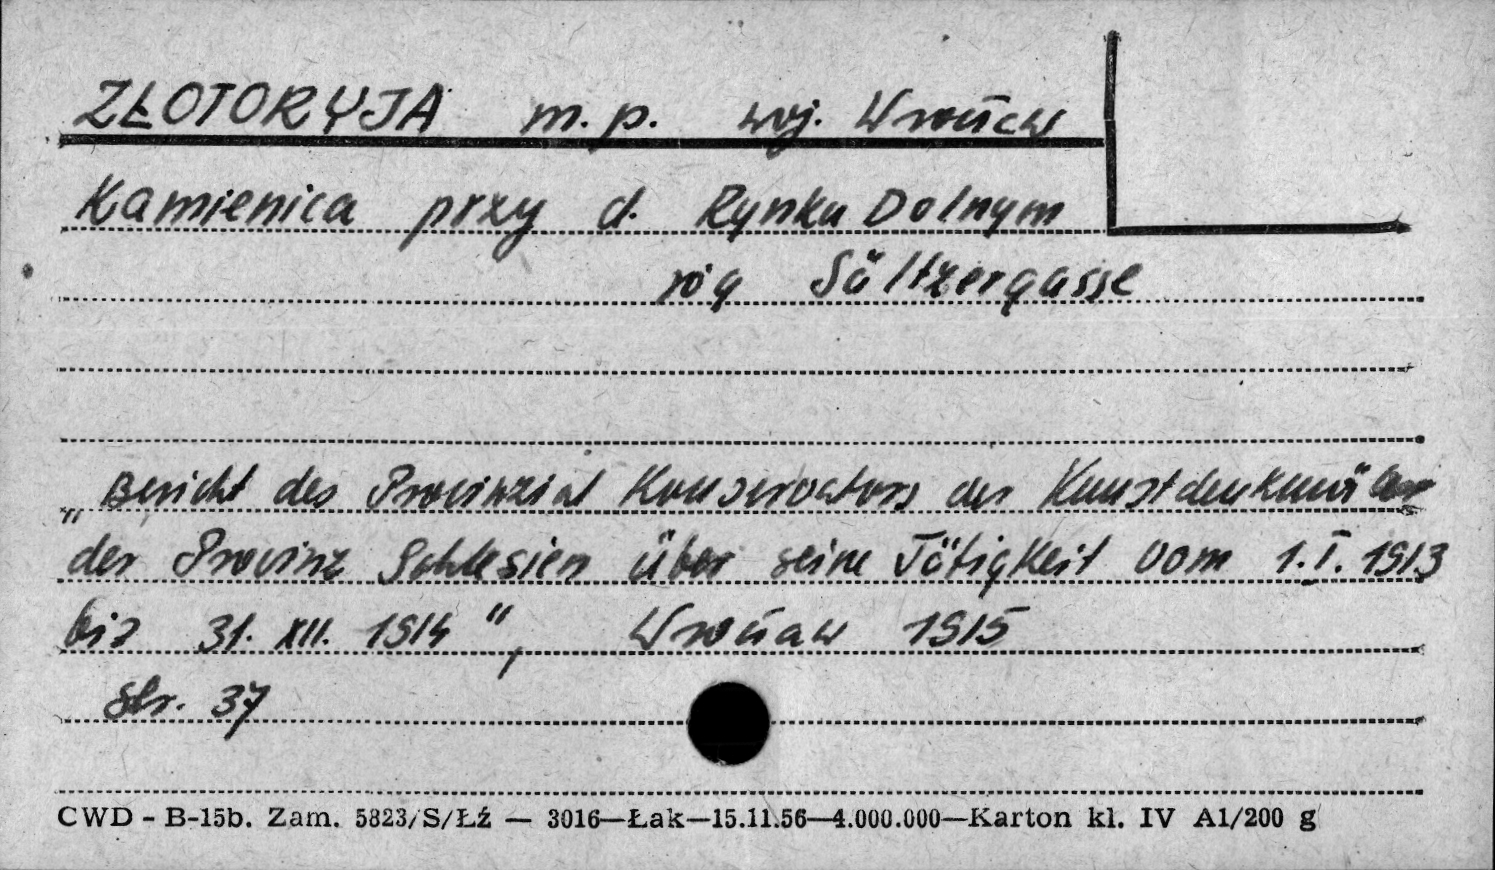 ZŁOTORYJA m. p. woj. Wrocław
Kamienica przy d. Rynku Dolnym
róg Sältzergasse
„Bericht des Provinzial Konservators der Kunstdenkmäler
der Provinz Schlesien über seine Tätigkeit vom 1.I.1913
bis 31. XII. 1914", Wrocław 1915
Str. 37
CWD - B-15b. Zam. 5823/S/Łź — 3016—Łak—15.11.56—4.000.000—Karton kl. IV A1/200 g